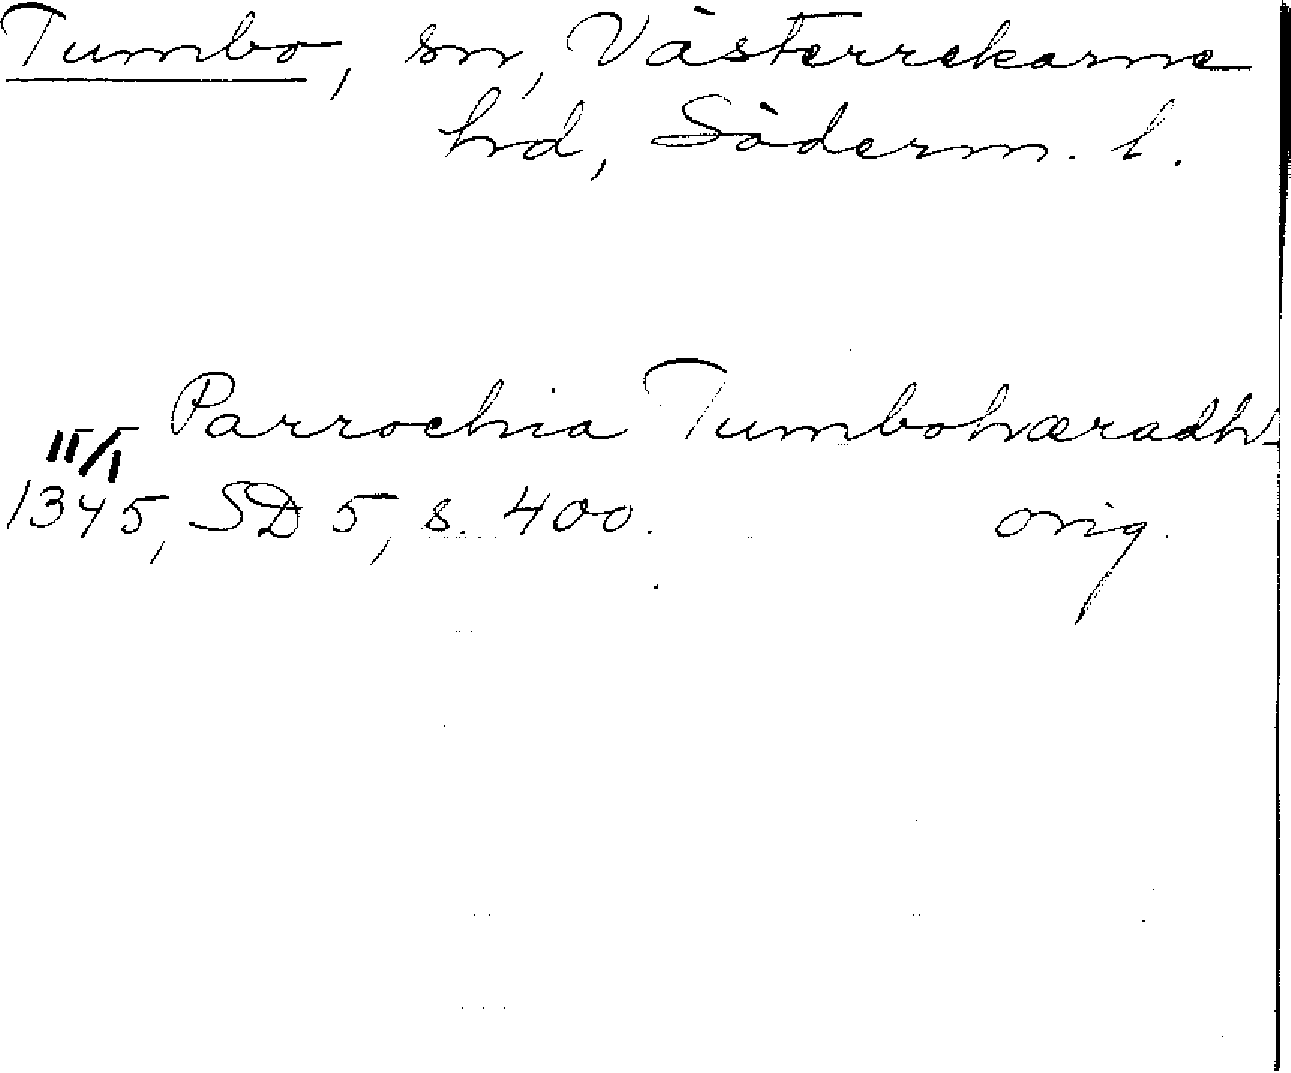 Tumbo, sn, Västerrekarne
hd, Söderm. l.
Parrochia Tumbohæradh
1345, SD 5, s. 400. orig.